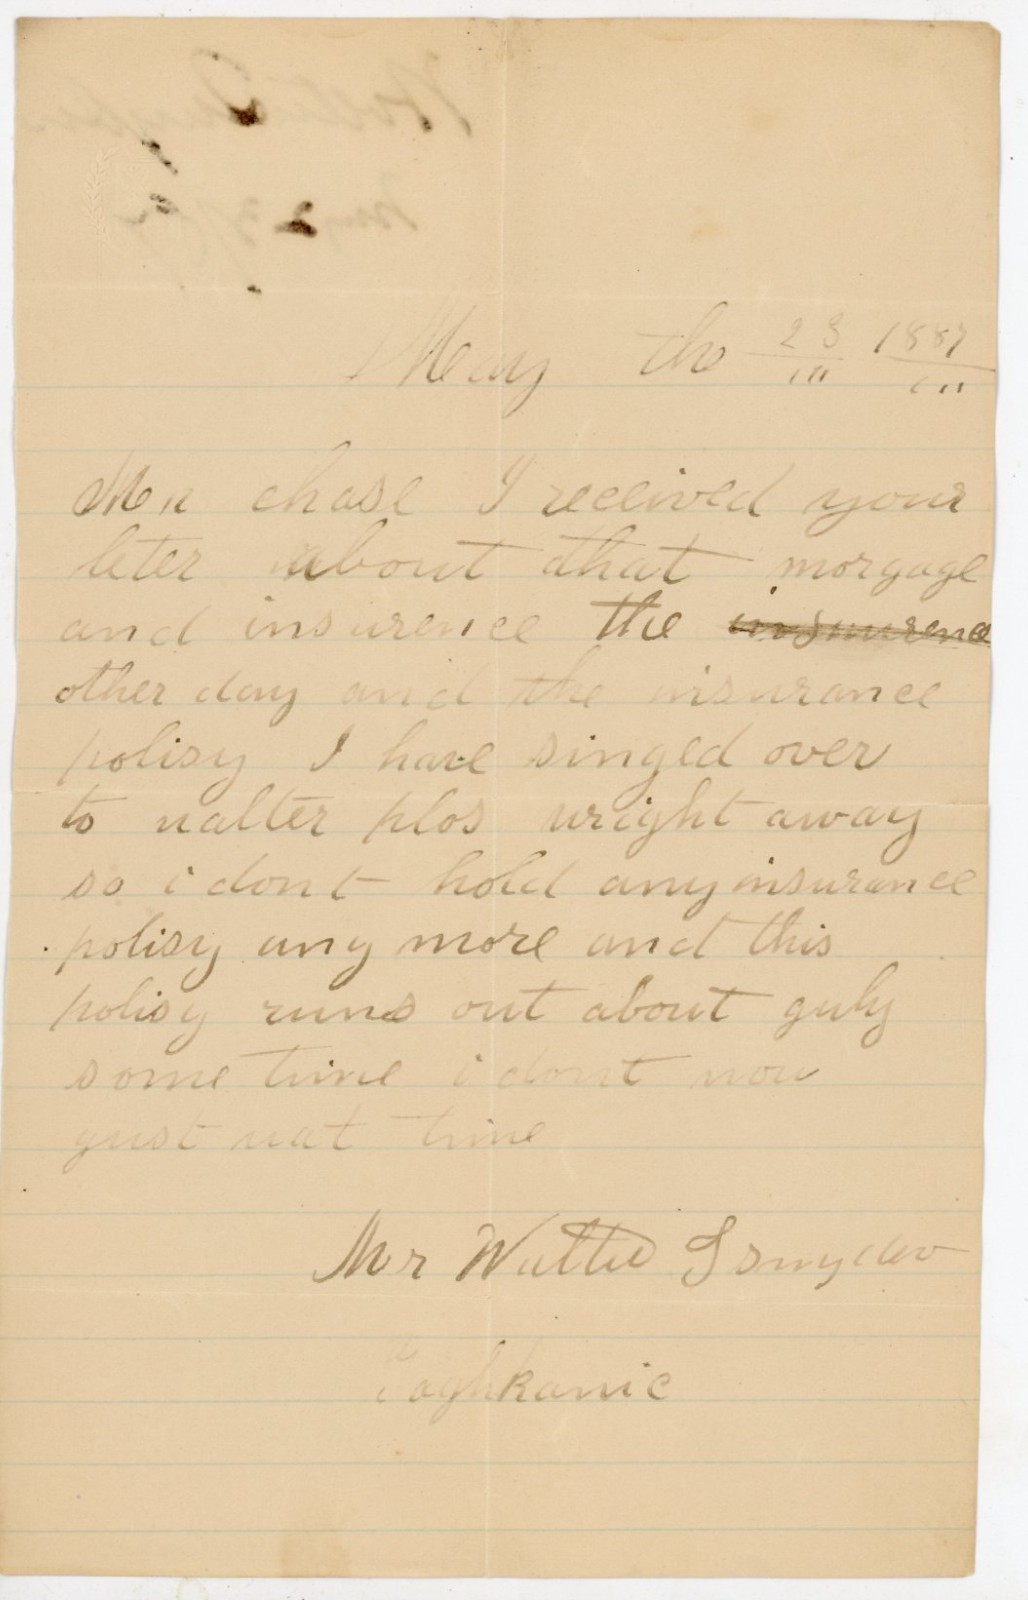 May the 23 1887
Mr chase I received your
leter about that morgage
and insurence the insurence
other day and the insurance
polisy I have singed over
to ualter plos wright away
so i dont hold any insurance
polisy any more and this
polisy runs out about guly
some time i dont now
gust uat time
Mr Walter Snyder
Taghkanic